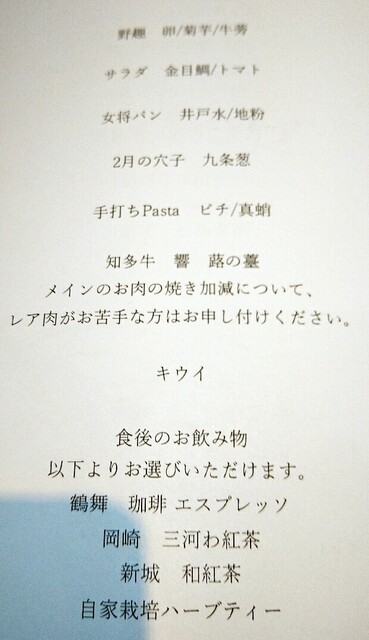 野趣　卵/菊芋/牛蒡
サラダ　金目鯛/トマト
女将パン　井戸水/地粉
2月の穴子　九条葱
手打ちPasta　ピチ/真蛸
知多牛　響　蕗の薹
メインのお肉の焼き加減について、
レア肉がお苦手な方はお申し付けください。
キウイ
食後のお飲み物
以下よりお選びいただけます。
鶴舞　珈琲 エスプレッソ
岡崎　三河わ紅茶
新城　和紅茶
自家栽培ハーブティー